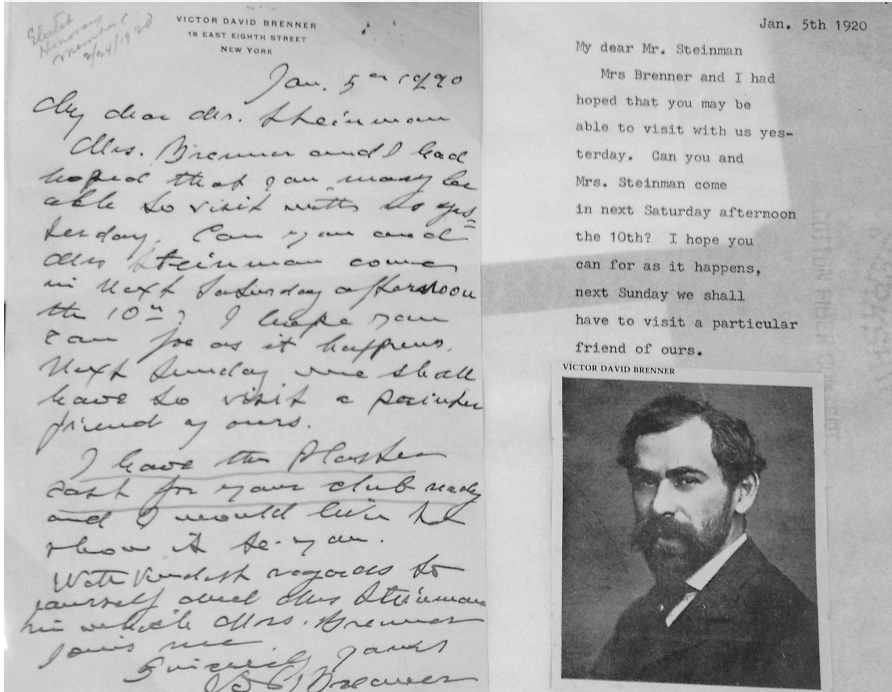 Elected
Honorary
Member
2/24/1920
VICTOR DAVID BRENNER
18 EAST EIGHTH STREET
NEW YORK
Jan. 5th 1920
My dear Mr. Steinman
Mrs. Brenner and I had
hoped that you may be
able to visit with us yes-
terday. Can you and
Mrs Steinman come
in next Saturday afternoon
the 10th? I hope you
can for as it happens,
Next Sunday we shall
have to visit a
friend of ours.
I have the Plaster
cast for your club ready
and I would like to
show it to you.
With kindest regards to
yourself and Mrs Steinman
in which Mrs. Brenner
joins me
Sincerely Yours
V D Brenner
Jan. 5th 1920
My dear Mr. Steinman
Mrs Brenner and I had
hoped that you may be
able to visit with us yes-
terday. Can you and
Mrs. Steinman come
in next Saturday afternoon
the 10th? I hope you
can for as it happens,
next Sunday we shall
have to visit a particular
friend of ours.
VICTOR DAVID BRENNER